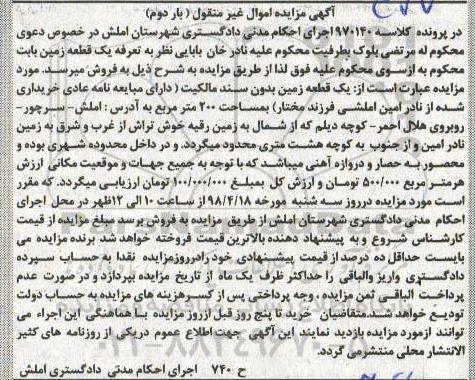 آگهی مزایده اموال غیر منقول (بار دوم)
در پرونده کلاسه ۹۷۰۱۴۰ اجرای احکام مدنی دادگستری شهرستان املش در خصوص دعوی
محکوم له مرتضی بلوک بطرفیت محکوم علیه نادر خان بابایی نظر به تعرفه یک قطعه زمین بابت
محکوم به ازسوی محکوم علیه فوق لذا از طریق مزایده به شرح ذیل به فروش میرسد. مورد
مزایده عبارت است از: یک قطعه زمین بدون سند مالکیت (دارای مبایعه نامه عادی خریداری
شده از نادر امین املشی فرزند مختار) بمساحت ۲۰۰ متر مربع به آدرس: املش- سرچور-
روبروی هلال احمر- کوچه دیلم که از شمال به زمین رقیه خوش تراش از غرب و شرق به زمین
نادر امین و از جنوب به کوچه هشت متری محدود میگردد. و در داخل محدوده شهری بوده و
محصور به حصار و دروازه آهنی میباشد که با توجه به جمیع جهات و موقعیت مکانی ارزش
هرمتر مربع ۵۰۰/۰۰۰ تومان و ارزش کل بمبلغ ۱۰۰/۰۰۰/۰۰۰ تومان ارزیابی میگردد. که مقرر
است مورد مزایده درروز سه شنبه مورخه ۹۸/۴/۱۸ از ساعت ۱۰ الی ۱۲ظهر در محل اجرای
احکام مدنی دادگستری شهرستان املش از طریق مزایده به فروش برسد مبلغ مزایده از قیمت
کارشناس شروع و به پیشنهاد دهنده بالاترین قیمت فروخته خواهد شد. برنده مزایده می
بایست حداقل ده درصد از قیمت پیشنهادی خود رادرروزمزایده نقدا به حساب سپرده
دادگستری واریز والباقی را حداکثر ظرف یک ماه از تاریخ مزایده بپردازد و در صورت عدم
پرداخت الباقی ثمن مزایده وجه پرداختی پس از کسرهزینه های مزایده به حساب دولت
تودیع خواهد شد.متقاضیان خرید تا پنج روز قبل ازروز مزایده با هماهنگی این اجراء می
توانند ازمورد مزایده بازدید نمایند این آگهی جهت اطلاع عموم دریکی از روزنامه های کثیر
الانتشار محلی منتشرمی گردد.
ح ۷۴۰ اجرای احکام مدنی دادگستری املش